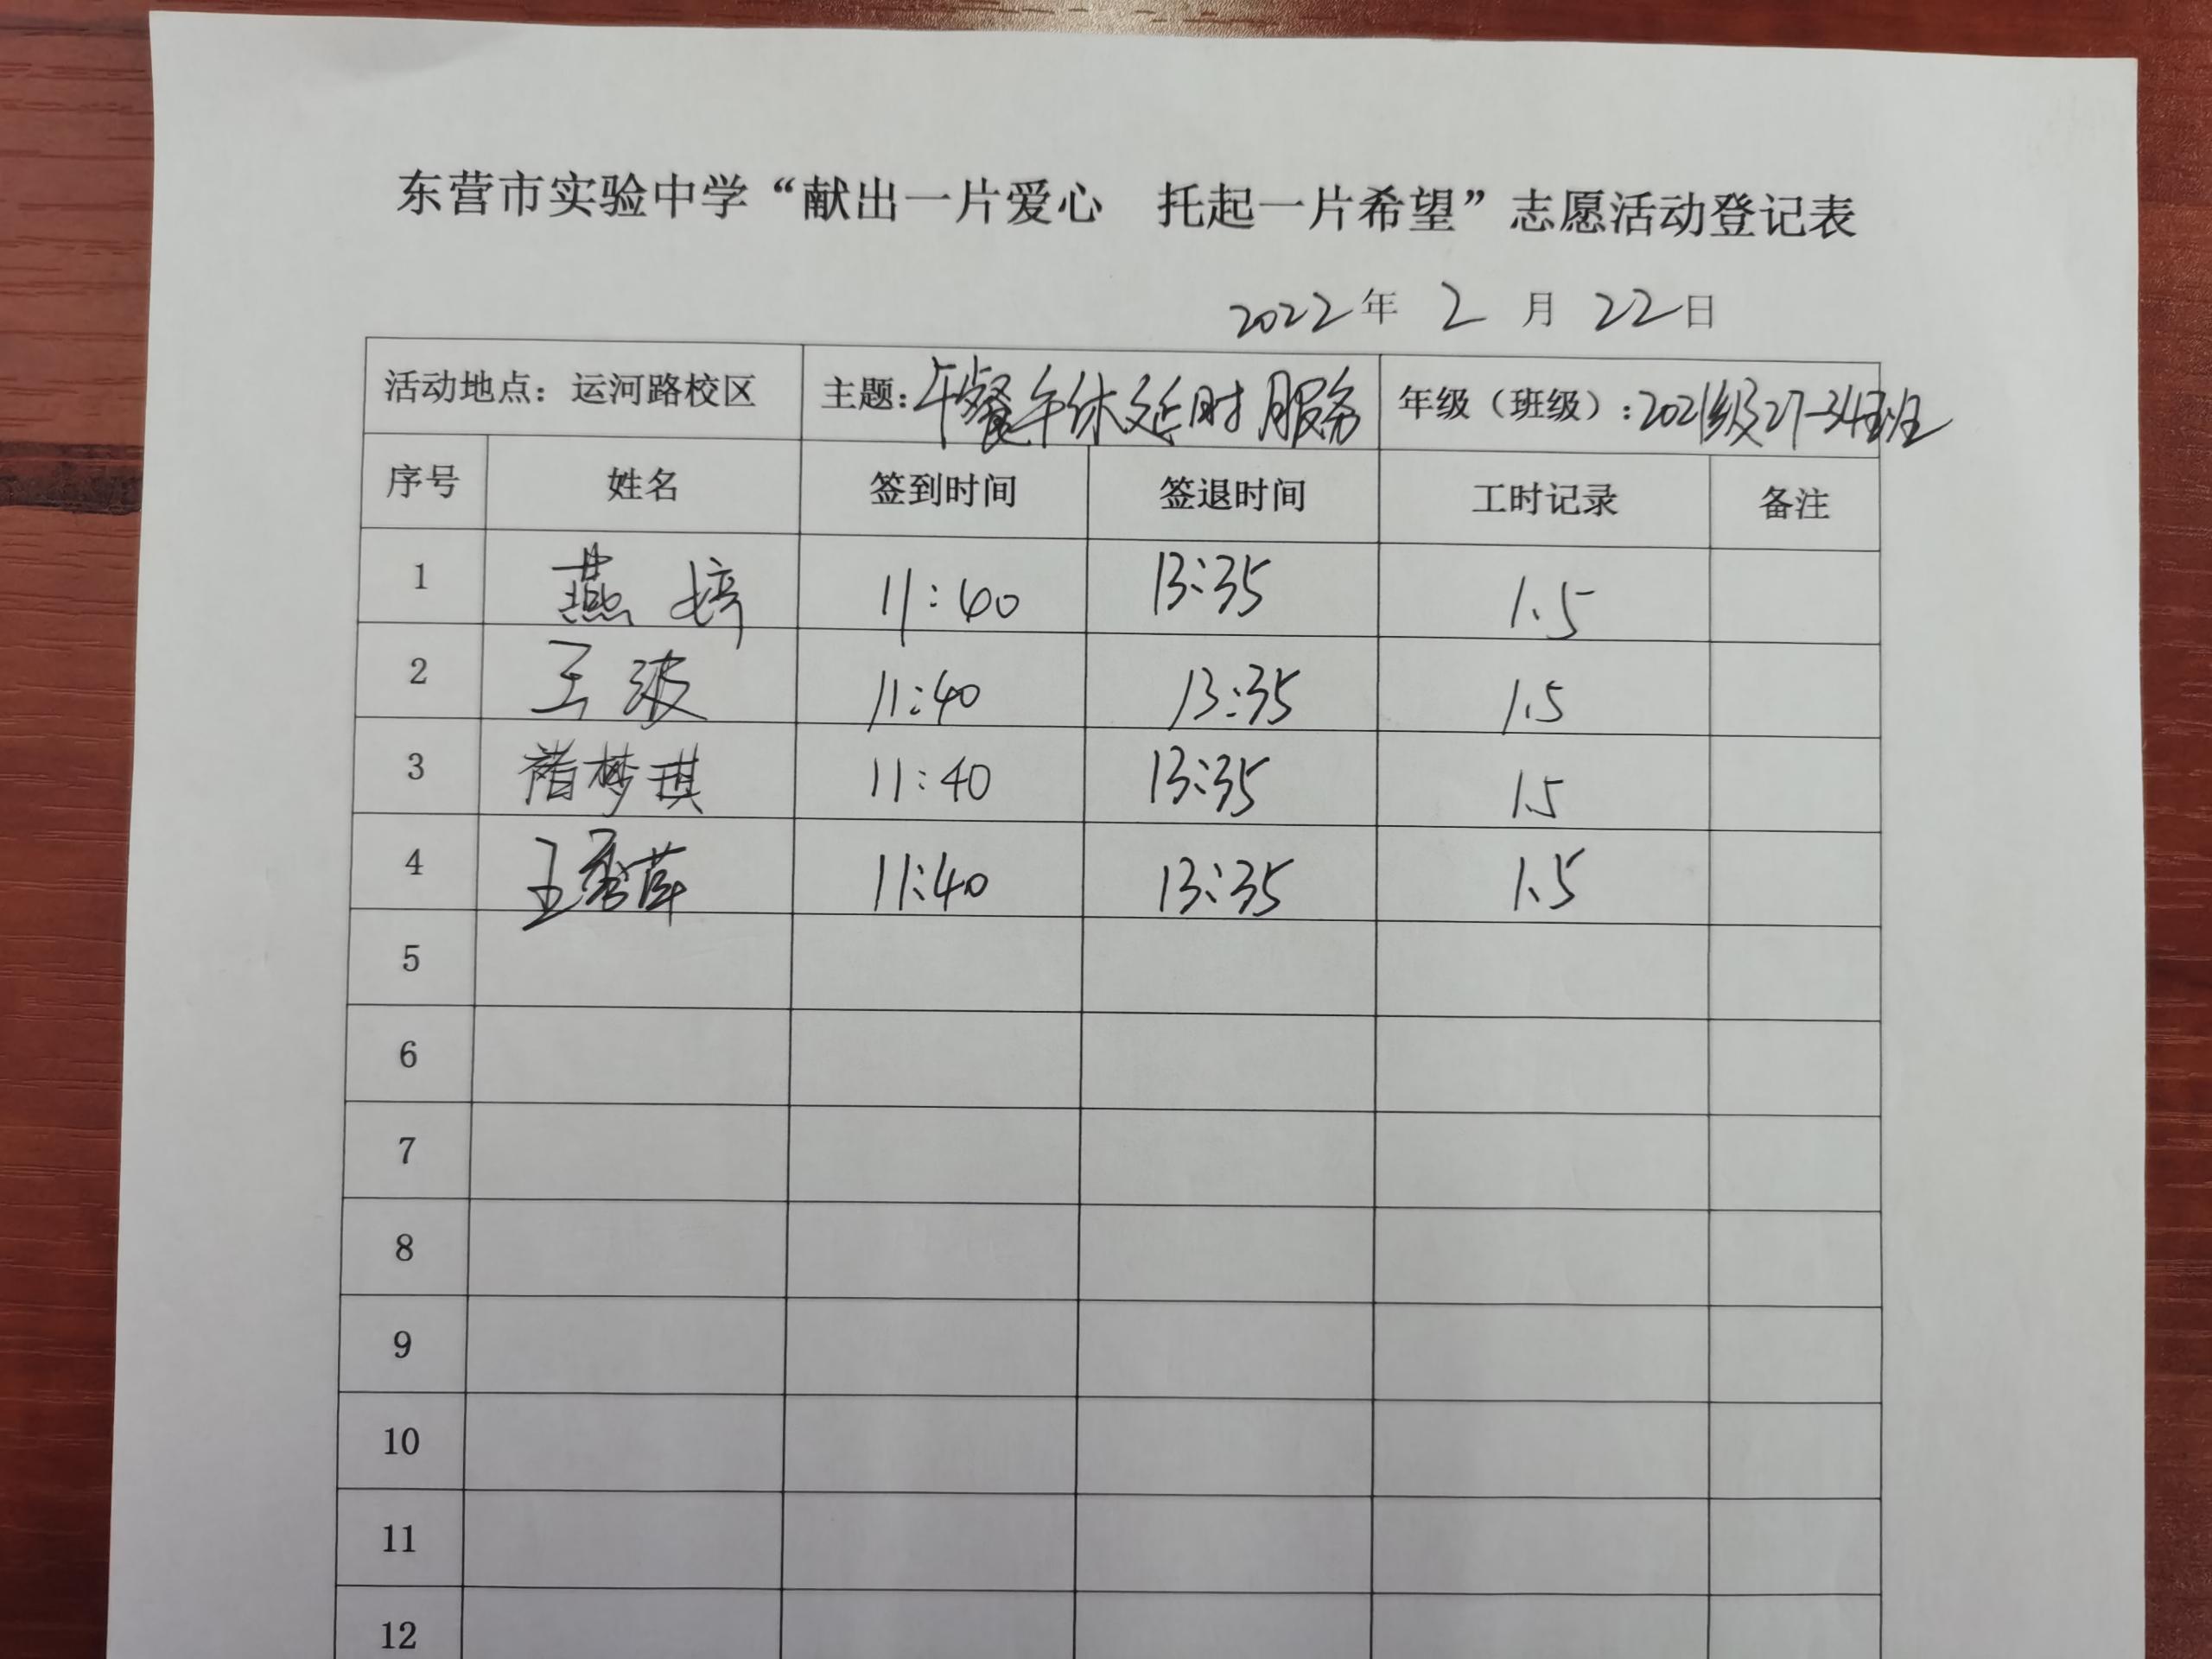 东营市实验中学“献出一片爱心 托起一片希望”志愿活动登记表
2022年 2 月 22日
活动地点：运河路校区 主题：午餐午休延时服务 年级（班级）：2021级27-34班
序号 姓名 签到时间 签退时间 工时记录 备注
1 燕婷 11:40 13:35 1.5
2 王波 11:40 13:35 1.5
3 褚梦琪 11:40 13:35 1.5
4 王秀萍 11:40 13:35 1.5
5
6
7
8
9
10
11
12